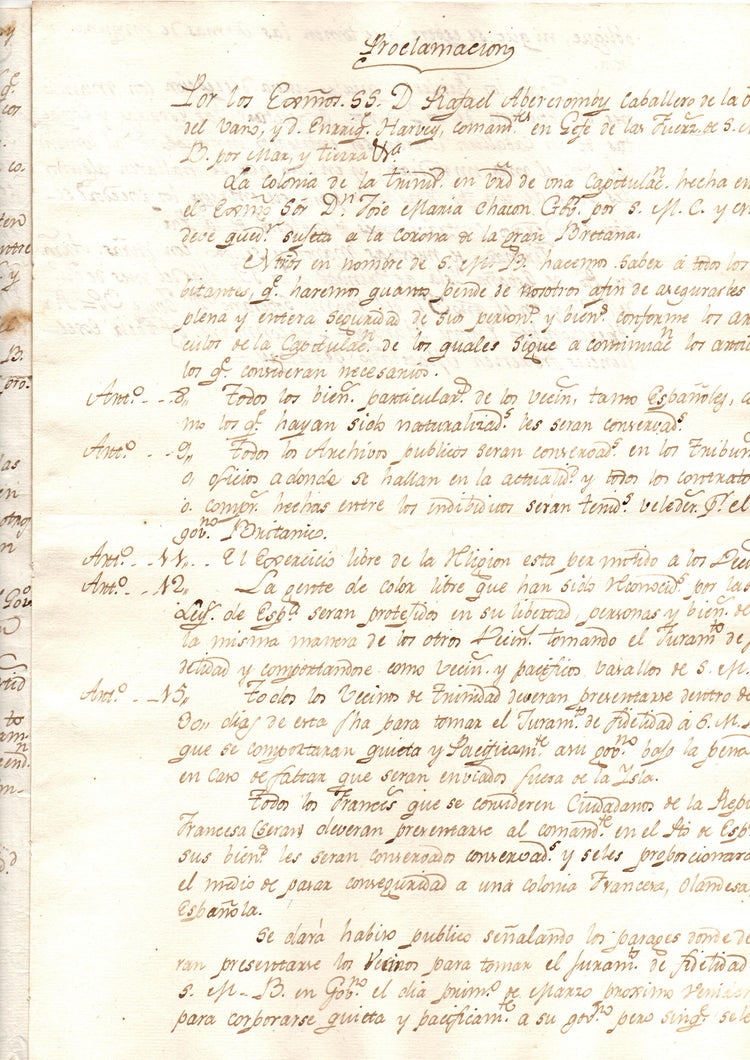 Proclamacion
Por los Exmos. SS. D. Rafael Abercromby Caballero de la O
del vano, y d. Enriq. Harvey, comand.tes en Gefe de las Fuerz. de S. M
B. por Mar, y tierra &.a
La colonia de la trinid. en vrd de una Capitulac.n hecha en
el Exmo Sor D.n Jose Maria Chacon Gov.r por S. M. C. y
deve qued.r sujeta a la corona de la gran Bretana.
Ntros en nombre de S. M. B. hacemos saber a todos los
bitantes, q.e haremos quanto pende de nosotros afin de asegurarles
plena y entera seguridad de sus person.s y bien.s conforme los ar
culos de la Capitulac.n de los quales sigue a continuac.n los
los q.e consideran necesarios.
Art.o - - 8,, todos los bien.s particular.s de los vecin. tanto Españoles, co
mo los q.e hayan sido naturalizad.s les seran conservad.s
Art.o - - 9,, todos los Archivos publicos seran conservad.s en los tribun
o, oficios adonde se hallan en la actualid.d y todos los contrato
o. compr. hechas entre los indibiduos seran tenid.s veleder. p.r el
gov.no Britanico.
Art.o - - 11,, El Exercicio libre de la Religion esta permitido a los Veci
Art.o - - 12,, La gente de color libre que han sido reconocid.s por las
Leij.s de Esp.a seran protejidos en su libertad, personas y bien.s de
la misma manera de los otros vecin. tomando el Juram.to de
delidad y comportandose como vecin. y pacificos vasallos de S. M.
Art.o - - 15,, todos los Vecinos de trinidad deveran presentarse dentro de
30,, dias de esta fha para tomar el Juram.to de fidelidad a S. M. B
que se comportaran quieta y Pacificam.te a su gov.no bajo la pena
en caso de faltar que seran enviados fuera de la Ysla.
todos los Frances. que se consideren Ciudadanos de la Repu
Francesa (seran deveran presentarse al comand.te en el Pto de Esp.
sus bien.s les seran conservados conservad.s y seles proporcionara
el medio de pasar conseguridad a una colonia Francesa, Olandesa
Española.
Se dará habiso publico señalando los parages donde de
ran presentarse los Vecinos para tomar el juram.to de fidelidad
S. M. B. en Gov.no el dia prim.o de Marzo proximo venider
para corporarse quieta y pacificam.te a su gov.no pero sing.e sele